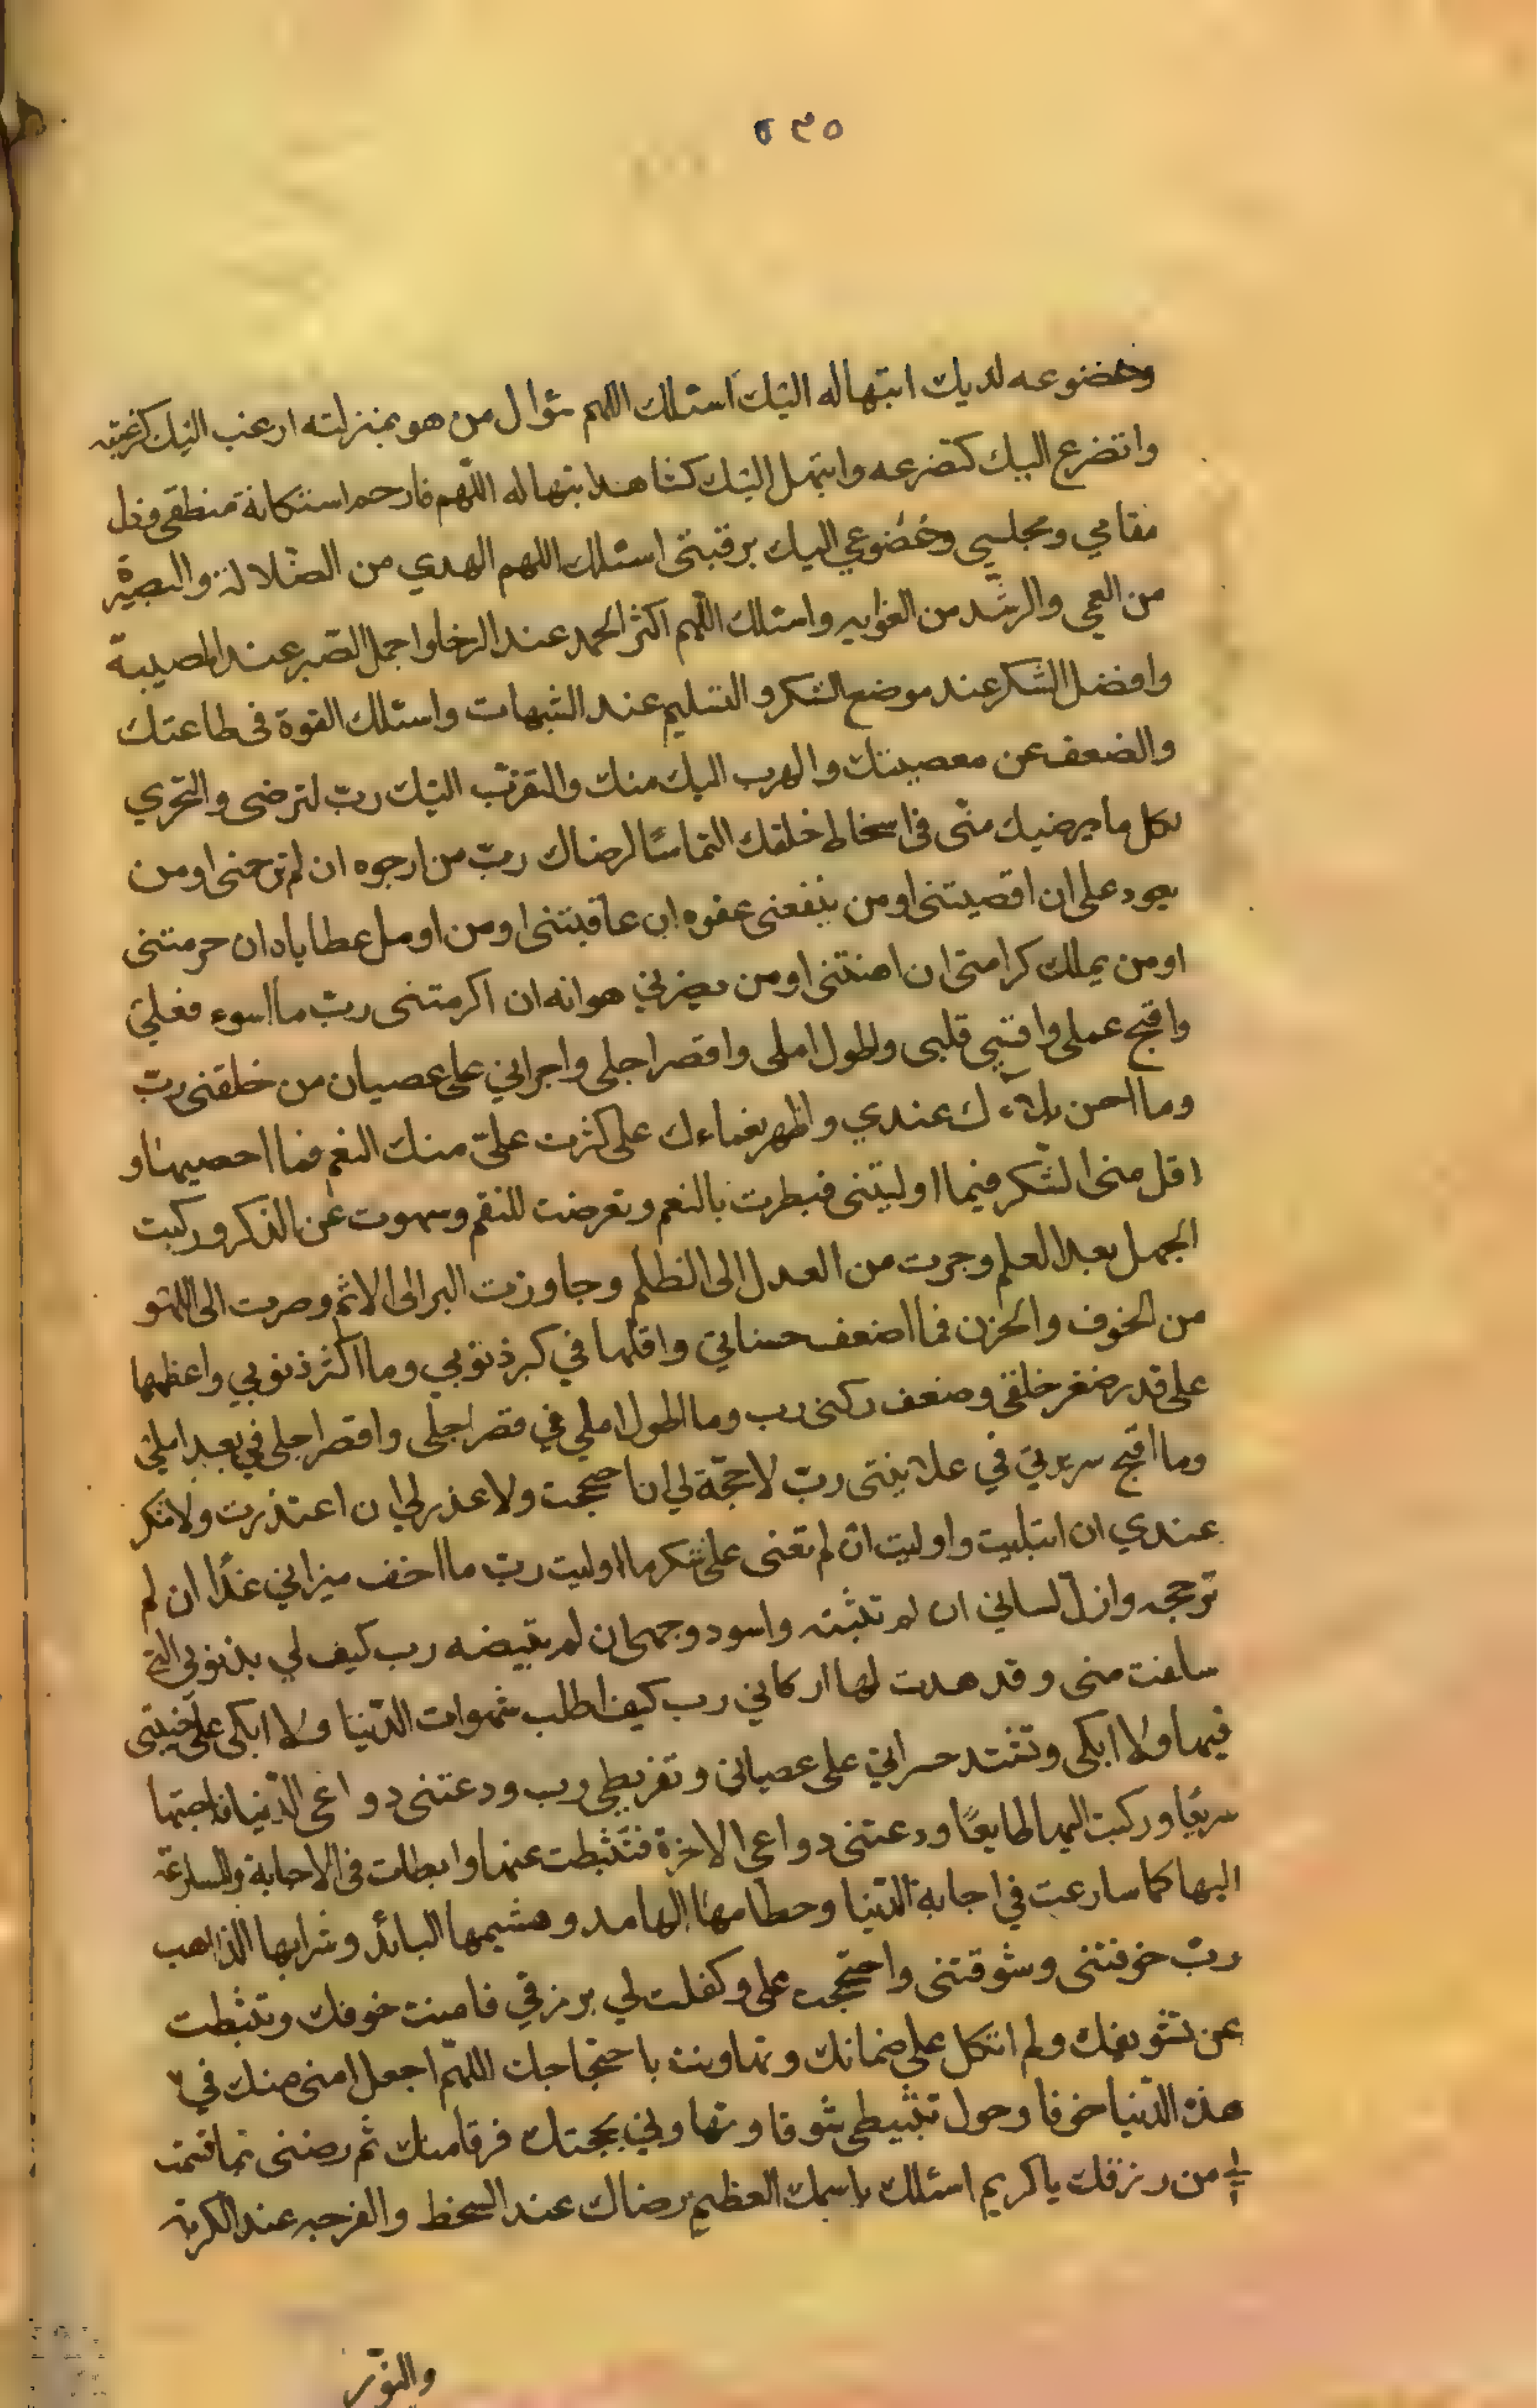 ٥٣٥
وخضوعه لديك ابتهاله اليك اسئلك اللهم سؤال من هو بمنزلته ارغب اليك كرغبته
واتضرع اليك كتضرعه وابتهل اليك كشاهد ابتهاله اللّهم فارحم استكانة منطقى وذل
مقامي ومجلسي وخضوعي اليك برقبتى اسئلك اللهم الهدي من الضّلالة والبصيرة
من العمي والرشّد من الغوايه واسئلك اللّهم اكثر الحمد عند الرخا واجمل الصّبر عند المصيبة
وافضل الشكر عند موضع الشكر والتسليم عند الشبهات واسئلك القوة فى طاعتك
والضعف عن معصيتك والهرب اليك منك والتقرّب اليك ربّ لترضى والتحري
لكل ما يرضيك منّى فى اسخاط خلقك التماسًا لرضاك ربّ من ارجوه ان لم ترحمنى او من
يعود على ان اقصيتنى او من ينفعنى عفوه ان عاقبتنى او من اومل عطاياه ان حرمتنى
او من يملك كرامتى ان اهنتنى او من يضرني هوانه ان اكرمتنى ربّ ما اسوء فعلي
واقبح عملى واقسي قلبى واطول املى واقصر اجلى واجراني على عصيان من خلقنى ربّ
وما احسن بلآءك عندي واظهر نعماءك على كثرت علىّ منك النعم فما احصيها و
اقل منى الشّكر فيما اوليتنى فبطرت بالنعم وتعرضت للنقم وسهوت عن الذكر وركبت
الجهل بعد العلم وجرت من العدل الى الظلم وجاوزت البر الى الاثم وصرت الى اللهو
من الخوف والحزن فما اضعف حسناتي واقلّها في كبر ذنوبي وما اكثر ذنوبي واعظمها
على قدر صغر خلقى وضعف ركنى رب وما اطول املي في قصر اجلى واقصر اجلى في بعد املي
وما اقبح سريرتي في علانيتى ربّ لا حجّة لي ان احتججت ولا عذر لي ان اعتذرت ولا شكر
عندي ان ابتليت واوليت ان لم تعنى على شكر ما اوليت ربّ ما اخف ميزاني غدًا ان لم
ترجحه وازلّ لساني ان لم تثبته واسود وجهى ان لم تبيضه رب كيف لي بذنوبى التي
سلفت منى وقد هدت لها اركاني رب كيف اطلب شهوات الدّنيا ولا ابكى على خيبتى
فيها ولا ابكى وتشتد حسراتي على عصيانى وتفريطي رب ودعتنى دواعى الدّنيا فاجبتها
سريعًا وركبت اليها طايعًا ودعتنى دواعى الاخرة فتثبطت عنها وابطات فى الاجابة والمسارعة
اليها كما سارعت في اجابة الدّنيا وحطامها الهامد وهشيمها البائد وشرابها الذاهب
ربّ خوفتنى وشوقتنى واحتججت على وكفلت لي برزقي فامنت خوفك وتثبطت
عن تشويقك ولم اتكل على ضمانك وتهاونت باحتجاجك اللهّم اجعل امنى منك في
هذه الدّنيا خوفا وحول تثبيطى شوقا وتهاوني بحجتك فرقا منك ثم رضنى بما قسمت
لي من رزقك يا كريم اسئلك باسمك العظيم رضاك عند السخط والفرجه عند الكربة
والنّور